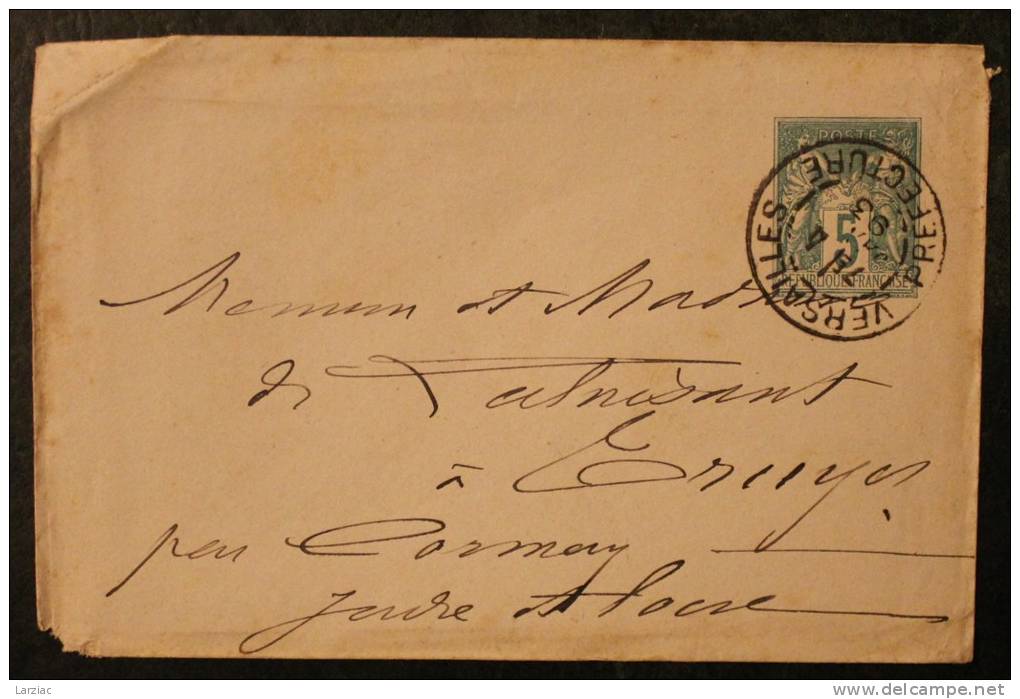 POSTE
5
REPUBLIQUE FRANÇAISE
VERSAILLES PREFECTURE
93
Monsieur et Madame
de
à Truyes
par Cormery
Indre et Loire
Larziac
www.delcampe.net